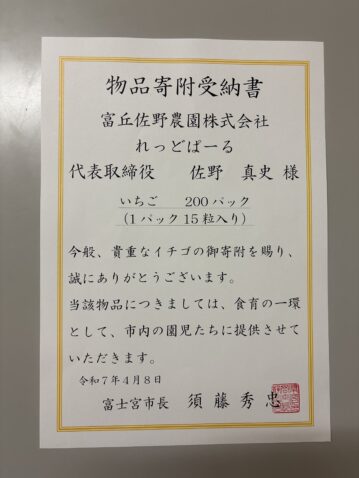 物品寄附受納書
富丘佐野農園株式会社
れっどぱーる
代表取締役　佐野　真史 様
いちご　200パック
(1パック15粒入り)
今般、貴重なイチゴの御寄附を賜り、
誠にありがとうございます。
当該物品につきましては、食育の一環
として、市内の園児たちに提供させて
いただきます。
令和7年4月8日
富士宮市長　須藤秀忠